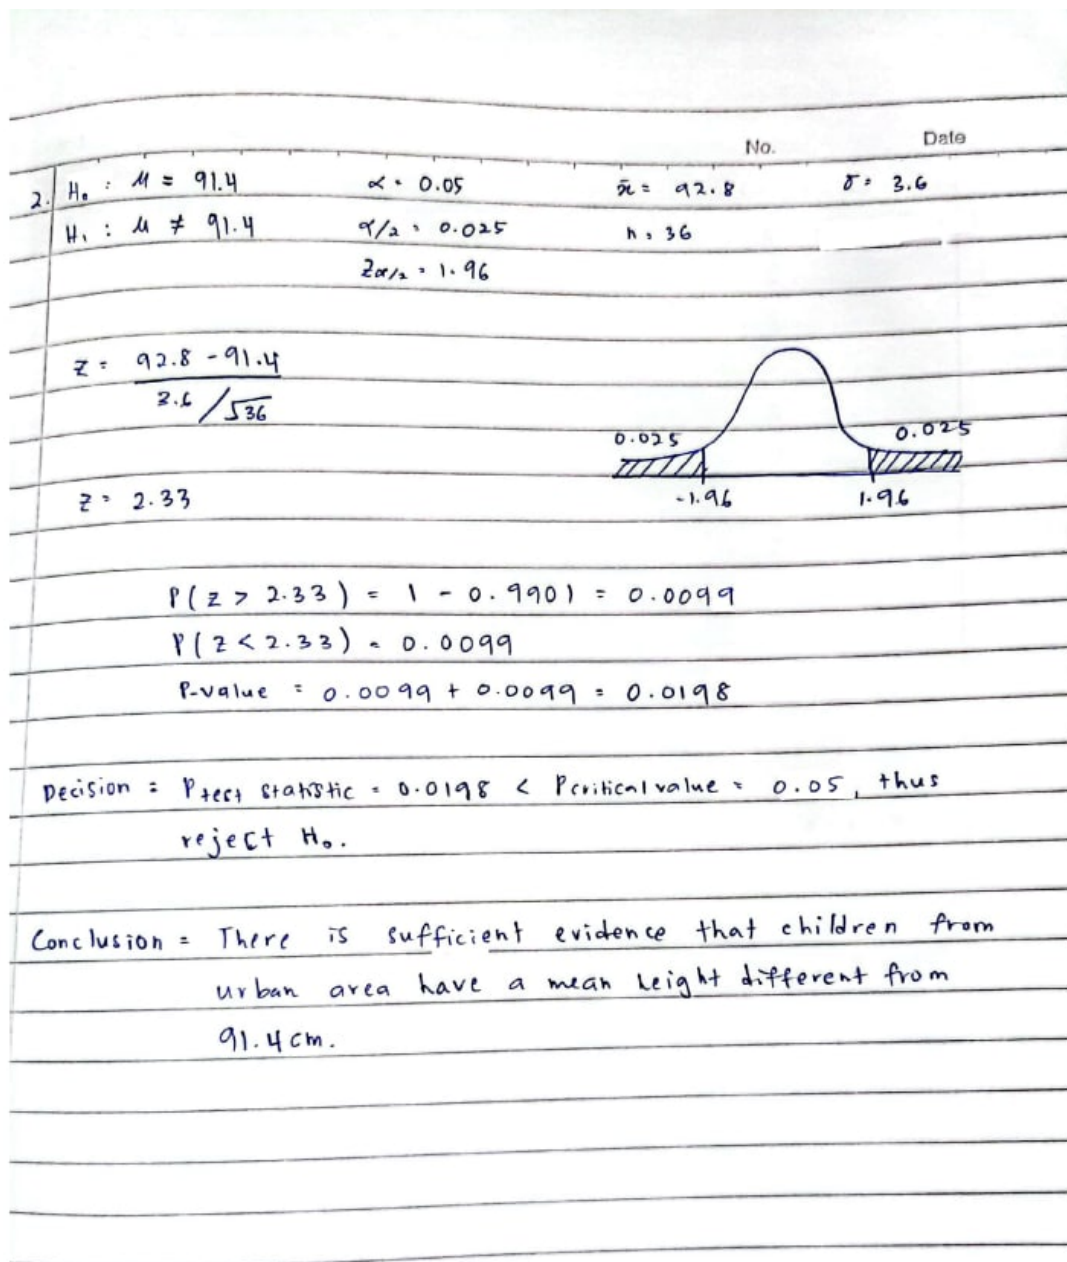 No. Date
2. H₀ : μ = 91.4 α = 0.05 x̄ = 92.8 σ = 3.6
H₁ : μ ≠ 91.4 α/2 = 0.025 n = 36
Zα/2 = 1.96
z = 92.8 - 91.4
3.6 / √36
0.025 0.025
z = 2.33 -1.96 1.96
P(z > 2.33) = 1 - 0.9901 = 0.0099
P(z < 2.33) = 0.0099
P-value = 0.0099 + 0.0099 = 0.0198
Decision = P test statistic = 0.0198 < P critical value = 0.05, thus
reject H₀.
Conclusion = There is sufficient evidence that children from
urban area have a mean height different from
91.4 cm.